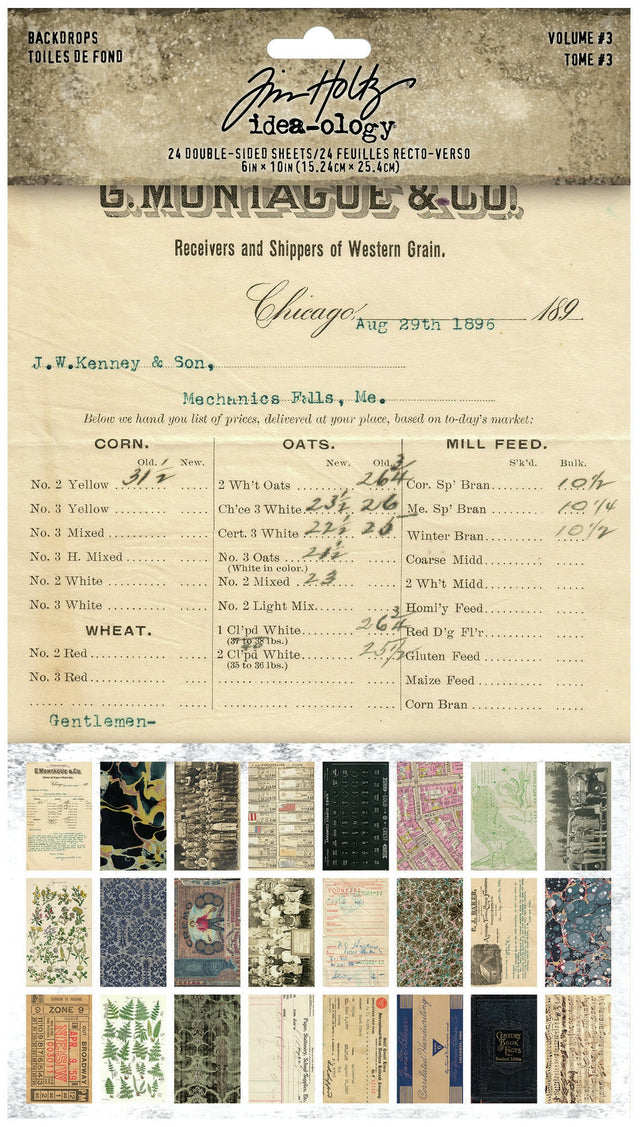 BACKDROPS
TOILES DE FOND
VOLUME #3
TOME #3
Tim Holtz
idea-ology
24 DOUBLE-SIDED SHEETS/24 FEUILLES RECTO-VERSO
6IN × 10IN (15.24CM × 25.4CM)
G. MONTAGUE & CO.
Receivers and Shippers of Western Grain.
Chicago, Aug 29th 1896 189
J.W.Kenney & Son,
Mechanics Falls, Me.
Below we hand you list of prices, delivered at your place, based on to-day's market:
CORN. OATS. MILL FEED.
Old. New. New. Old. S'k'd. Bulk.
No. 2 Yellow 31½ 2 Wh't Oats 26¾ Cor. Sp' Bran 10½
No. 3 Yellow Ch'ce 3 White 23½ 26 Me. Sp' Bran 10¼
No. 3 Mixed Cert. 3 White 22½ 25 Winter Bran 10½
No. 3 H. Mixed No. 3 Oats 21½ Coarse Midd
(White in color.)
No. 2 White No. 2 Mixed 23 2 Wh't Midd
No. 3 White No. 2 Light Mix Homi'y Feed
WHEAT. 1 Cl'pd White 26¾ Red D'g Fl'r
(37 to 38 lbs.)
No. 2 Red 2 Cl'pd White 25½ Gluten Feed
(35 to 36 lbs.)
No. 3 Red Maize Feed
Corn Bran
Gentlemen-
G. MONTAGUE & CO.
ZONE 9
APR 9 59
BROADWAY
CENTURY
BOOK
OF
FACTS